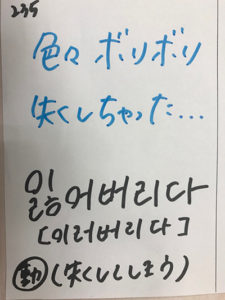 235
色々 ボリボリ
失くしちゃった…
잃어버리다
[이러버리다]
動 (失くししまう)